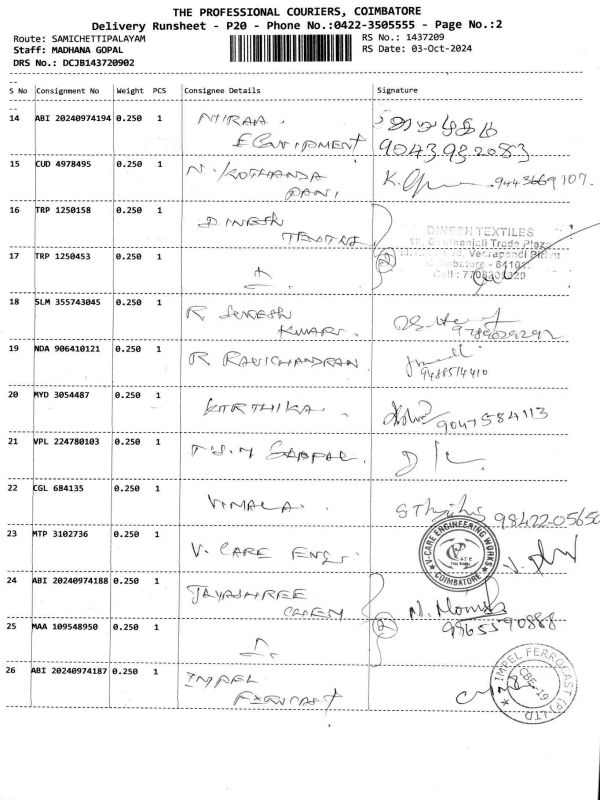 THE PROFESSIONAL COURIERS, COIMBATORE
Delivery Runsheet - P20 - Phone No.:0422-3505555 - Page No.:2
Route: SAMICHETTIPALAYAM
Staff: MADHANA GOPAL
DRS No.: DCJB143720902
RS No.: 1437209
RS Date: 03-Oct-2024
S No Consignment No Weight PCS Consignee Details Signature
14 ABI 20240974194 0.250 1 NIRAA.
EQUIPMENT
9043932083
15 CUD 4978495 0.250 1 N. KOTHANDA
PANI, 9443669107.
16 TRP 1250158 0.250 1 DINESH
TEXTILES
DINESH TEXTILES
Trade Plaza
Veerapandi Pirivu
Coimbatore - 64101
Cell : 7708201020
17 TRP 1250453 0.250 1
2
18 SLM 355743045 0.250 1 R SURESH
KUMAR. 9789029292
19 NDA 906410121 0.250 1 R RAVICHANDRAN.
9488514410
20 MYD 3054487 0.250 1 KIRTHIKA. 9047584113
21 VPL 224780103 0.250 1 GOPAL.
22 CGL 684135 0.250 1 VIMALA. 98422-05650
23 MTP 3102736 0.250 1 V. CARE ENGG.
V-CARE ENGINEERING WORKS
COIMBATORE
24 ABI 20240974188 0.250 1 JAYASHREE
CHEM
9965590888
25 MAA 109548950 0.250 1
2
26 ABI 20240974187 0.250 1 IMPEL
FERROCAST
IMPEL FERROCAST (P) LTD
CBE-19